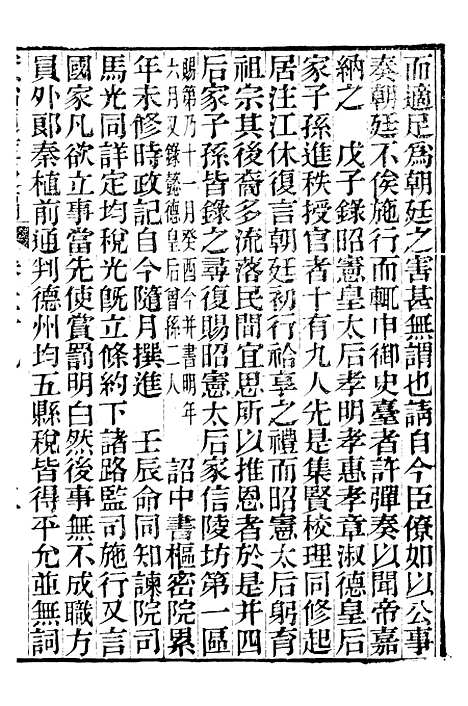 而適足爲朝廷之害甚無謂也請自今臣僚如以公事
奏朝廷不俟施行而輒申御史臺者許彈奏以聞帝嘉
納之　戊子錄昭憲皇太后孝明孝惠孝章淑德皇后
家子孫進秩授官者十有九人先是集賢校理同修起
居注江休復言朝廷初行祫享之禮而昭憲太后躬育
祖宗其後裔多流落民間宜思所以推恩者於是并四
后家子孫皆錄之尋復賜昭憲太后家信陵坊第一區
賜第乃十一月癸酉今并書明年
六月又錄懿德皇后曾孫二人
詔中書樞密院累
年未修時政記自今隨月撰進　壬辰命同知諫院司
馬光同詳定均稅光旣立條約下諸路監司施行又言
國家凡欲立事當先使賞罰明白然後事無不成職方
員外郞秦植前通判德州均五縣稅皆得平允並無詞